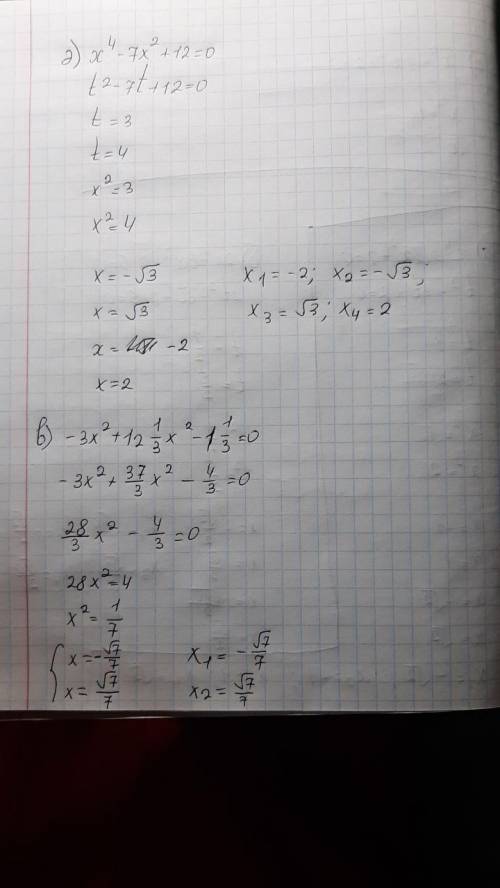 а) x⁴-7x²+12=0
t²-7t+12=0
t=3
t=4
x²=3
x²=4
x=-√3 x₁=-2; x₂=-√3;
x=√3 x₃=√3; x₄=2
x= -2
x=2
в) -3x²+12 1/3 x²-1 1/3=0
-3x²+37/3 x²-4/3=0
28/3 x²-4/3=0
28x²=4
x²=1/7
{x=-√7/7 x₁=-√7/7
x=√7/7 x₂=√7/7